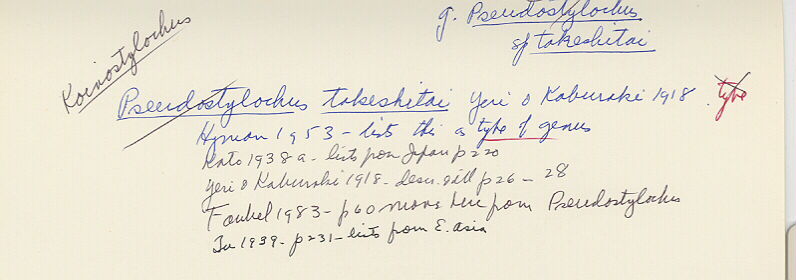 g. Pseudostylochus
sp takeshitai
Koinostylochus
Pseudostylochus takeshitai Yeri & Kaburaki 1918 type
Hyman 1953 - lists this as type of genus
Kato 1938a - lists from Japan p220
Yeri & Kaburaki 1918 - descr. p26 - 28
Faubel 1983 - p60 moves here from Pseudostylochus
1939 - p231 - lists from E. asia